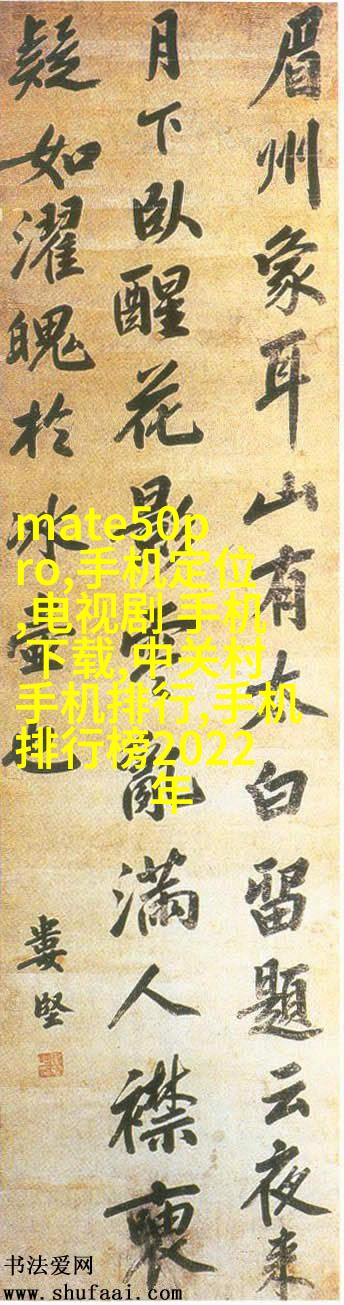 眉州象耳山有太白留題云夜来
月下臥醒花影零亂滿人襟
疑如濯魄於冰壺也
婁堅
mate50p
ro,手机定位
,电视剧 手机
下载,中关村
手机排行,手机
排行榜2022
年
书法爱网
www.shufaai.com